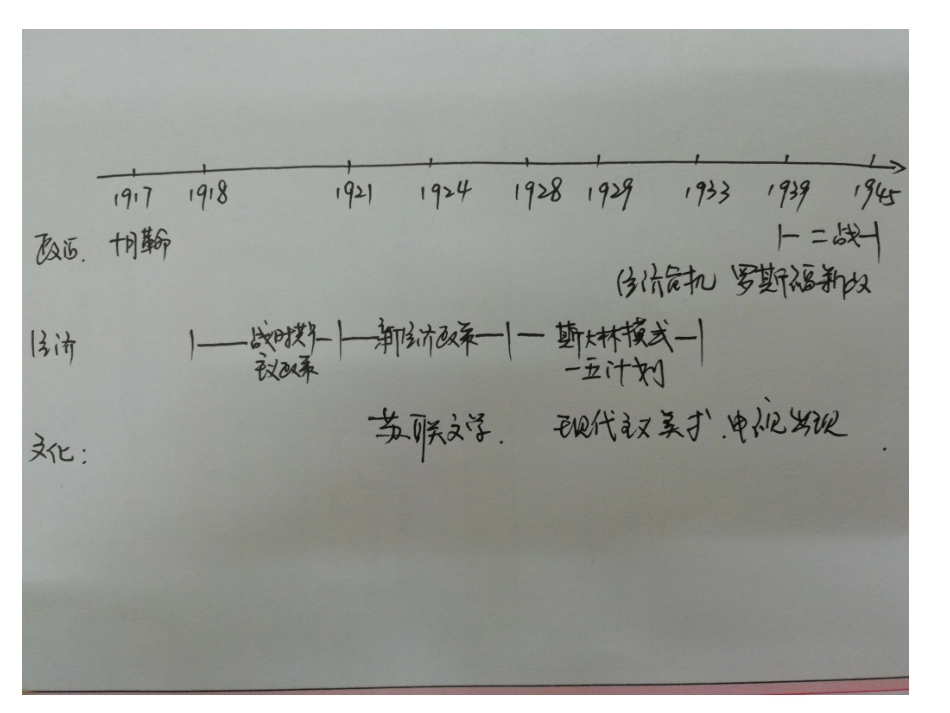 1917 1918 1921 1924 1928 1929 1933 1939 1945
政治. 十月革命 二战
经济危机 罗斯福新政
经济 战时共产 新经济政策 斯大林模式
主义政策 一五计划
苏联文学. 现代主义美术.电视出现
文化: